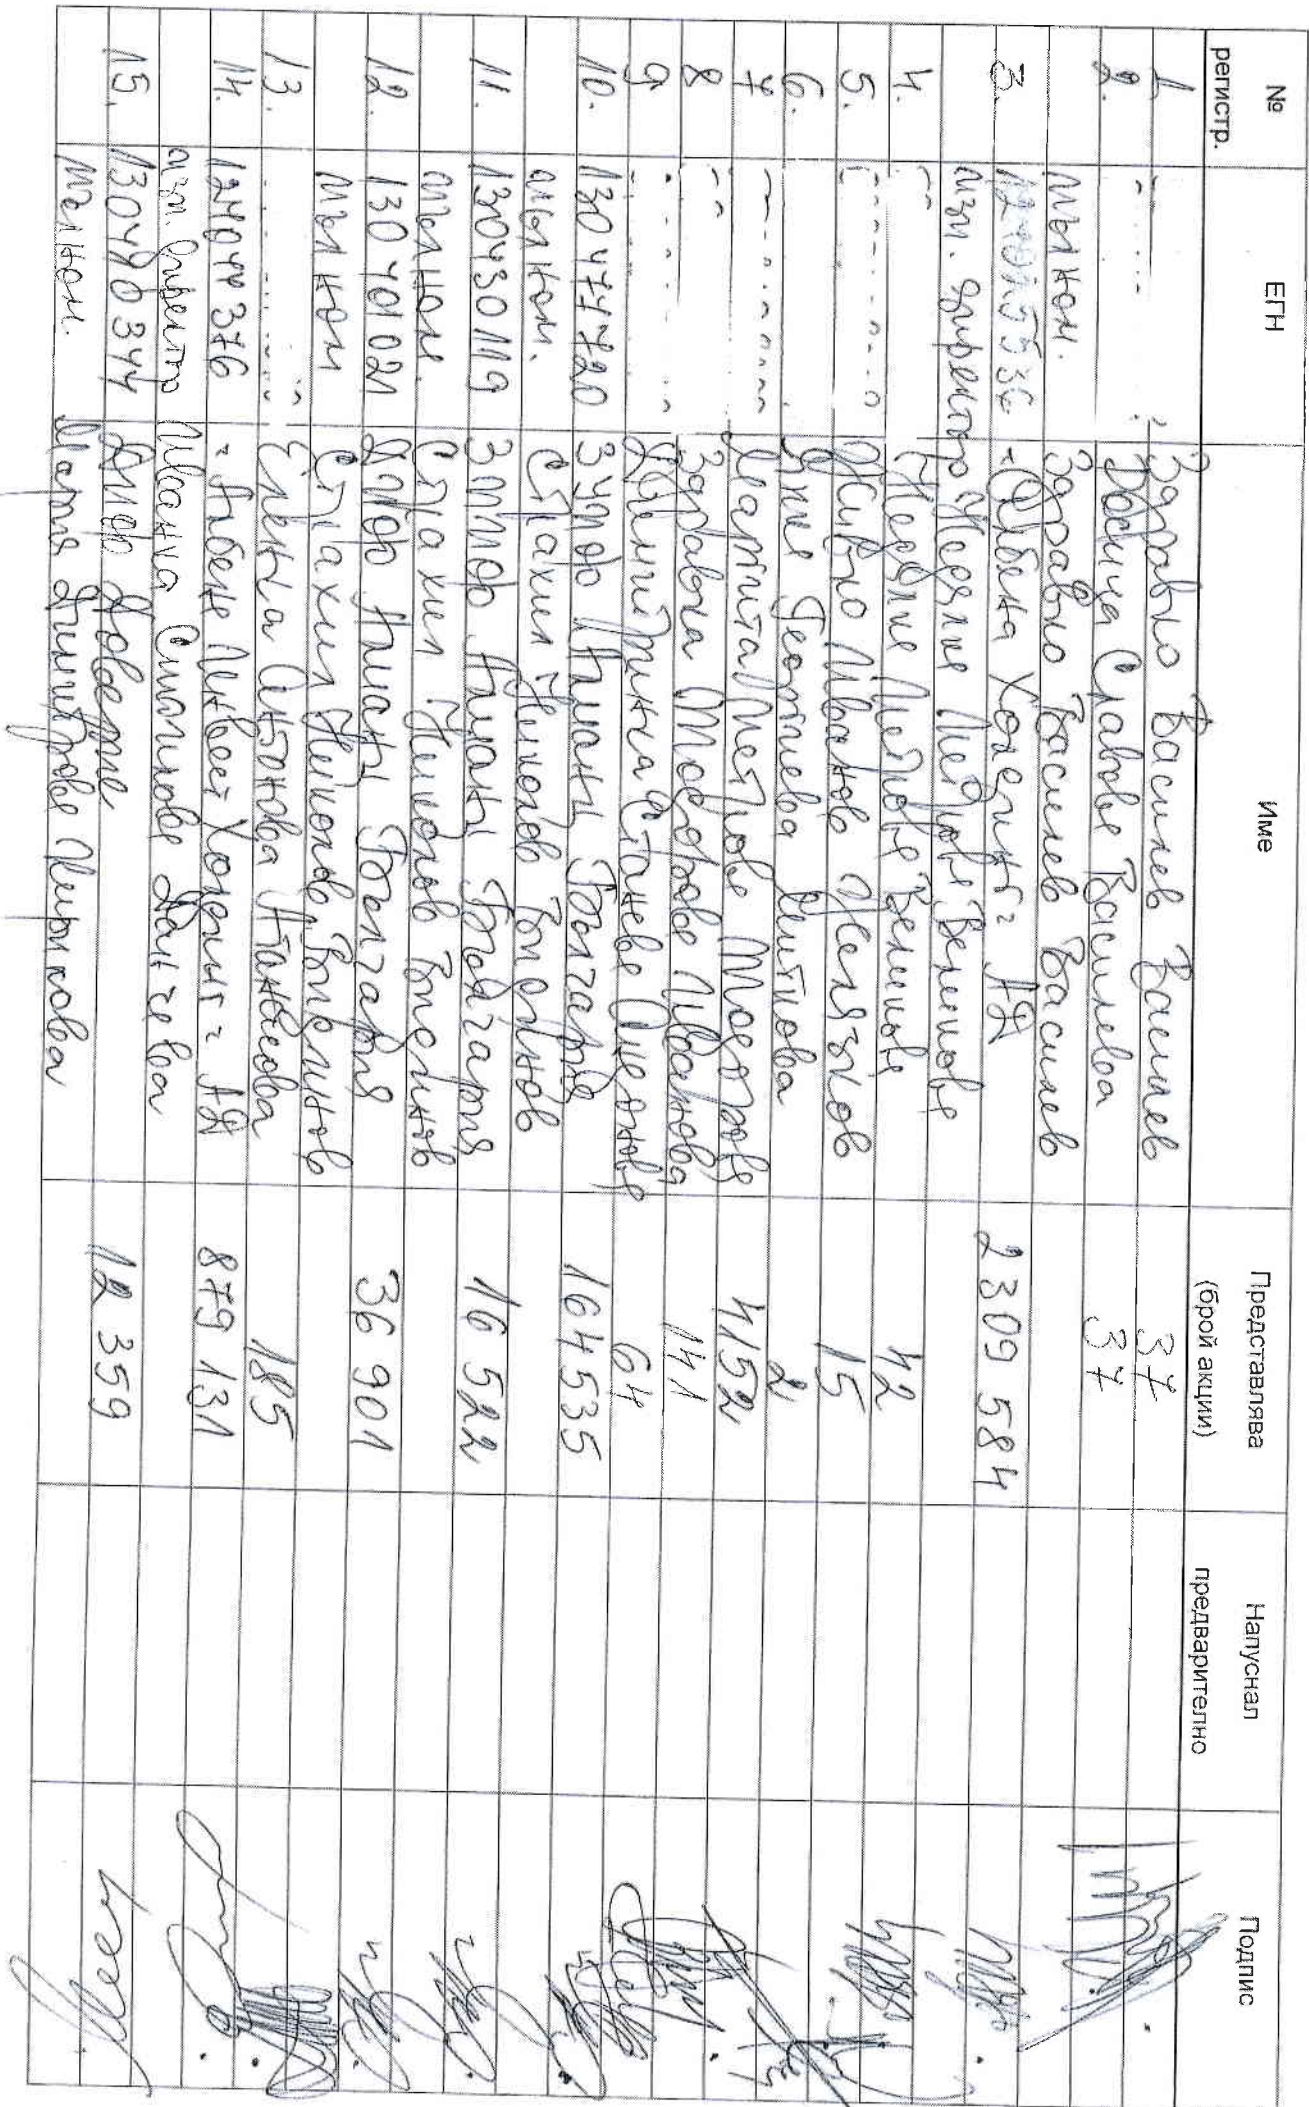 № регистр. ЕГН Име Представлява (брой акции) Напуснал предварително Подпис
1. Здравко Василев Василев 37
2. Босица Славова Василева 37
пълном. Здравко Василев Василев
3. "Албена Холдинг" АД 2309 584
изп. директор Недялко Петров Великов
4. Недялко Петров Великов 42
5. Живко Иванов Желязков 15
6. Яна Георгиева Миткова 2
7 Маргарита Петрова Тодорова 4152
8 Здравка Тодорова Иванова 141
9 Димитринка Станева Симеонова 64
10. 130477720 ЗУПФ Алианц България 164535
пълном. Стахил Николов Видинов
11. 130430119 ЗППФ Алианц България 16 522
пълном. Стахил Николов Видинов
12. 130401021 ДПФ Алианц България 36 901
пълном Стахил Николов Видинов
13. Елена Антонова Атанасова 185
14. 124044376 "Албена Инвест Холдинг" АД 879 131
изп. директор Иванка Стоилова Данчева
15. 130480344 12 359
пълном. Мария Димитрова Чиракова